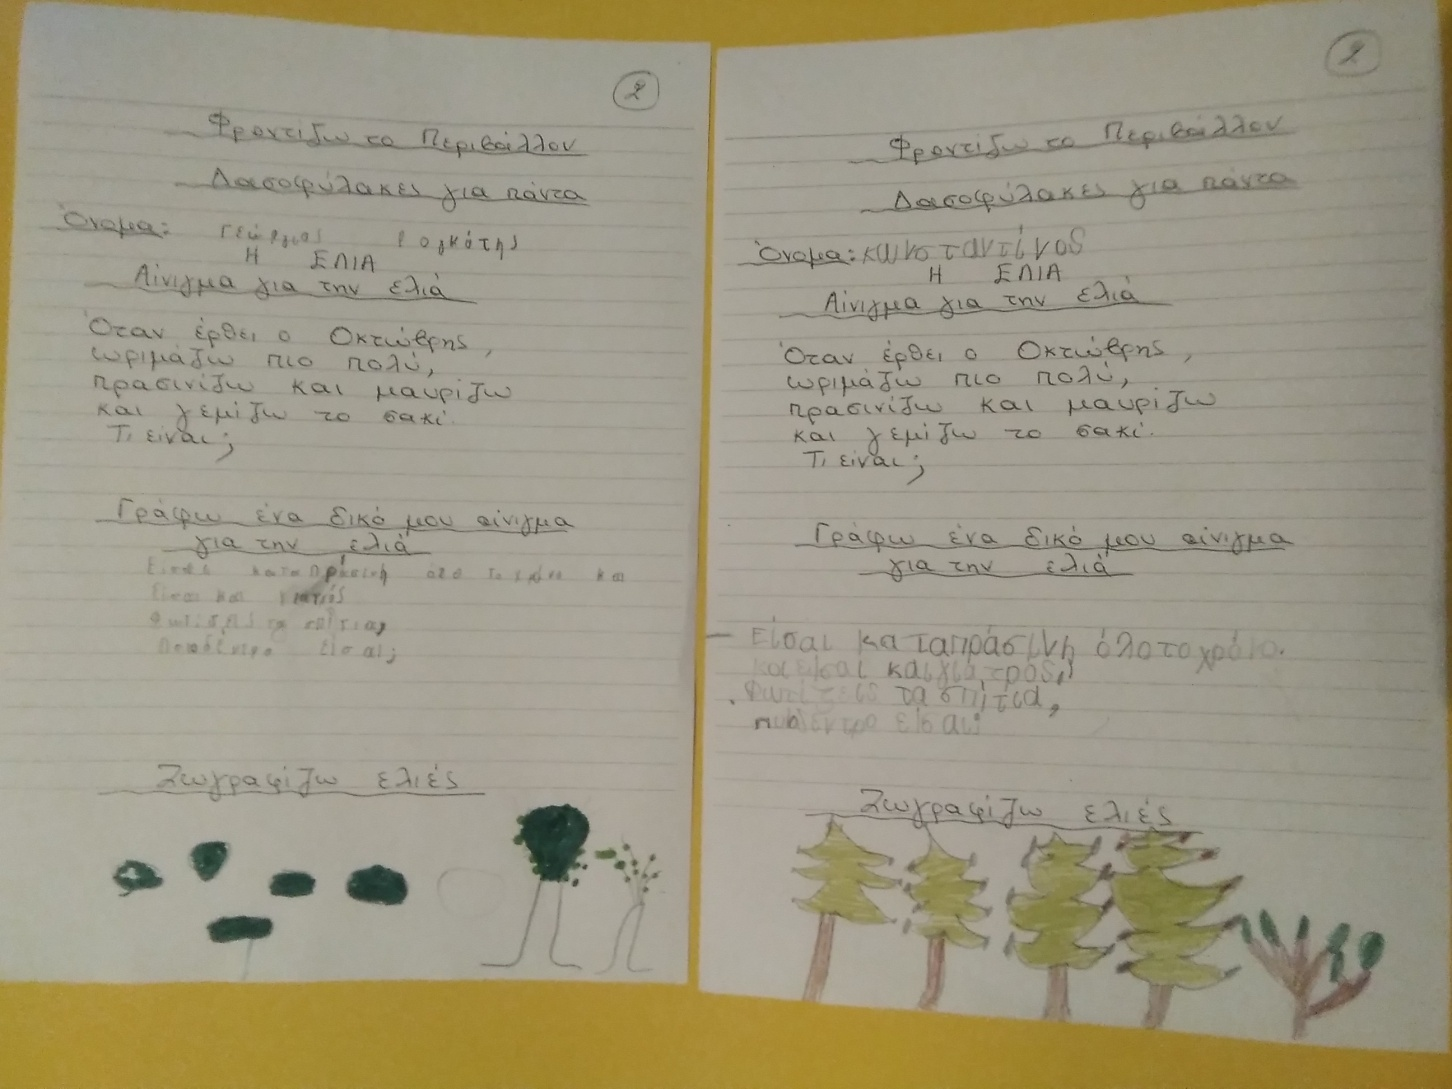 2
Φροντίζω το Περιβάλλον
Δασοφύλακες για πάντα
Όνομα: Γεώργιος
Η ΕΛΙΑ
Αίνιγμα για την ελιά
Όταν έρθει ο Οκτώβρης,
ωριμάζω πιο πολύ,
πρασινίζω και μαυρίζω
και γεμίζω το σακί.
Τι είναι;
Γράφω ένα δικό μου αίνιγμα
για την ελιά
Είσαι καταπράσινη
Είσαι και
τα σπίτια,
είσαι;
Ζωγραφίζω ελιές
2
Φροντίζω το Περιβάλλον
Δασοφύλακες για πάντα
Όνομα: κωνσταντίνος
Η ΕΛΙΑ
Αίνιγμα για την ελιά
Όταν έρθει ο Οκτώβρης,
ωριμάζω πιο πολύ,
πρασινίζω και μαυρίζω
και γεμίζω το σακί.
Τι είναι;
Γράφω ένα δικό μου αίνιγμα
για την ελιά
– Είσαι καταπράσινη όλοτοχρόνο.
και είσαι και γιατρός,
φωτίζεις τα σπίτια,
είσαι;
Ζωγραφίζω ελιές